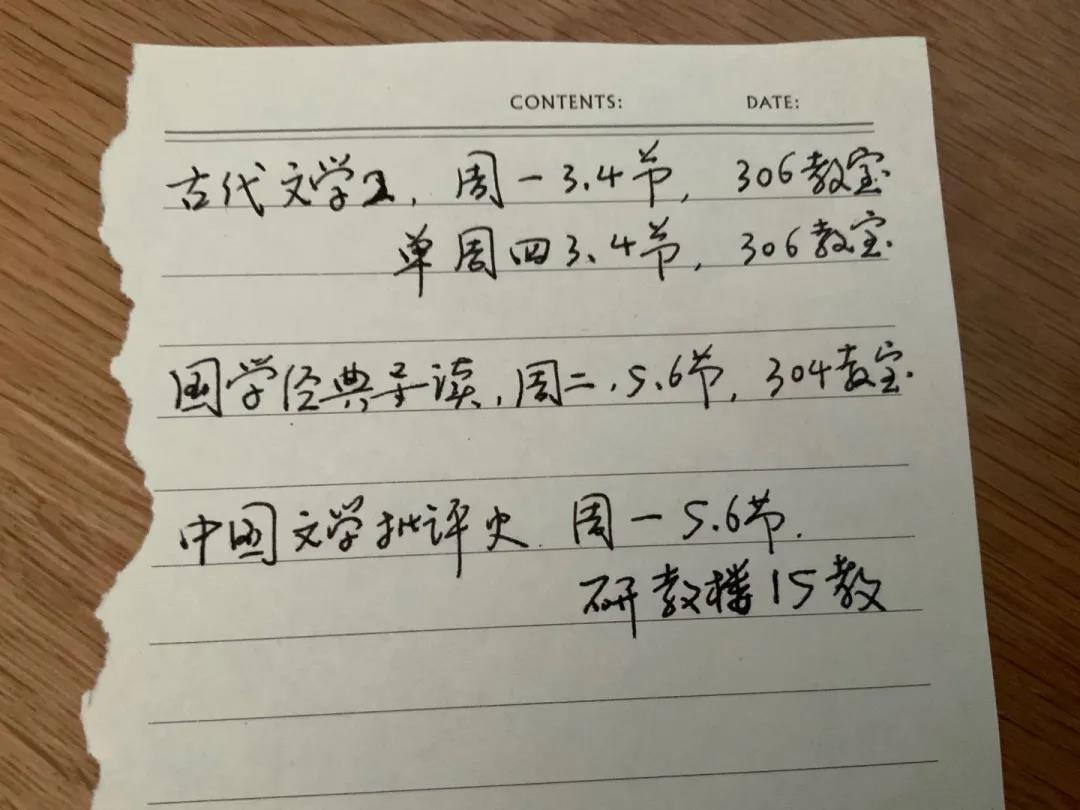 CONTENTS: DATE:
古代文学2，周一3.4节，306教室.
单周四3、4节，306教室.
国学经典导读，周二，5.6节，304教室.
中国文学批评史. 周一5.6节.
研教楼15教